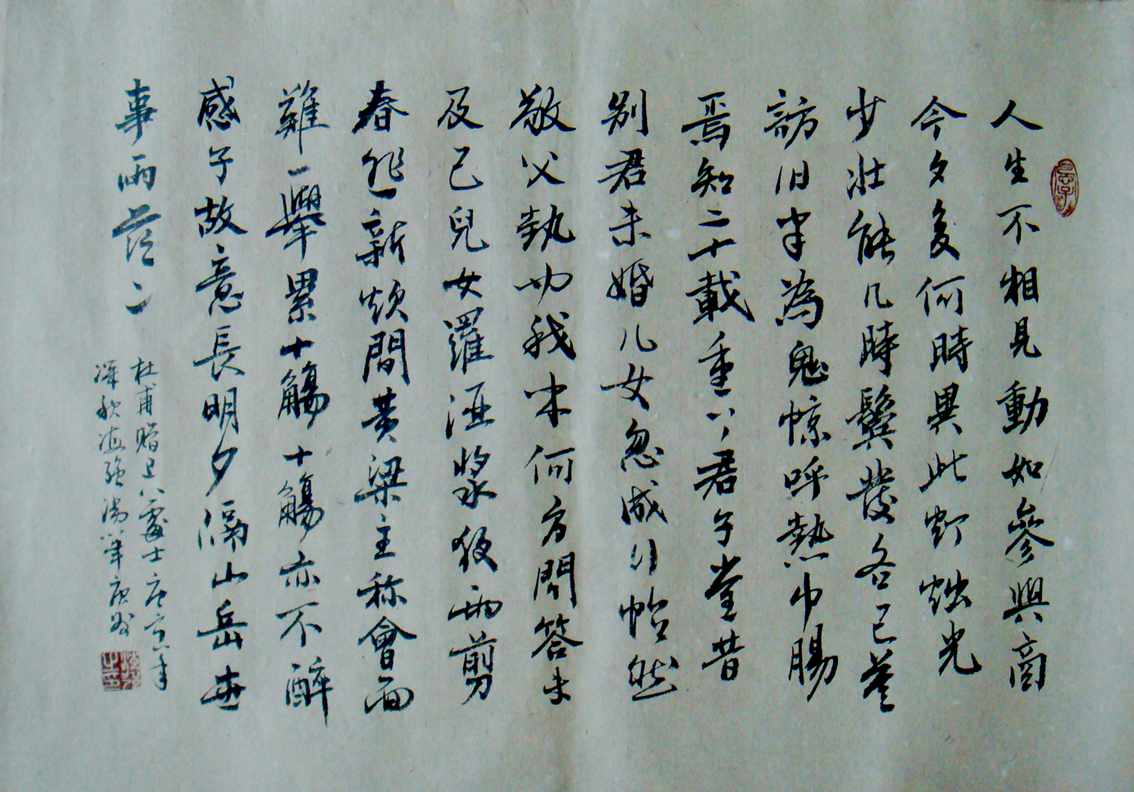 人生不相見動如參與商
今夕复何時異此灯燭光
少壯能几時鬓發各已蒼
訪旧半為鬼惊呼熱中腸
焉知二十載重上君子堂昔
别君未婚儿女忽成行怡然
敬父執问我来何方問答未
及已兒女羅酒漿夜雨剪
春韭新炊間黄粱主称會面
難一舉累十觴十觴亦不醉
感子故意長明夕隔山岳世
事兩茫々
杜甫贈卫八處士庚寅年
深秋